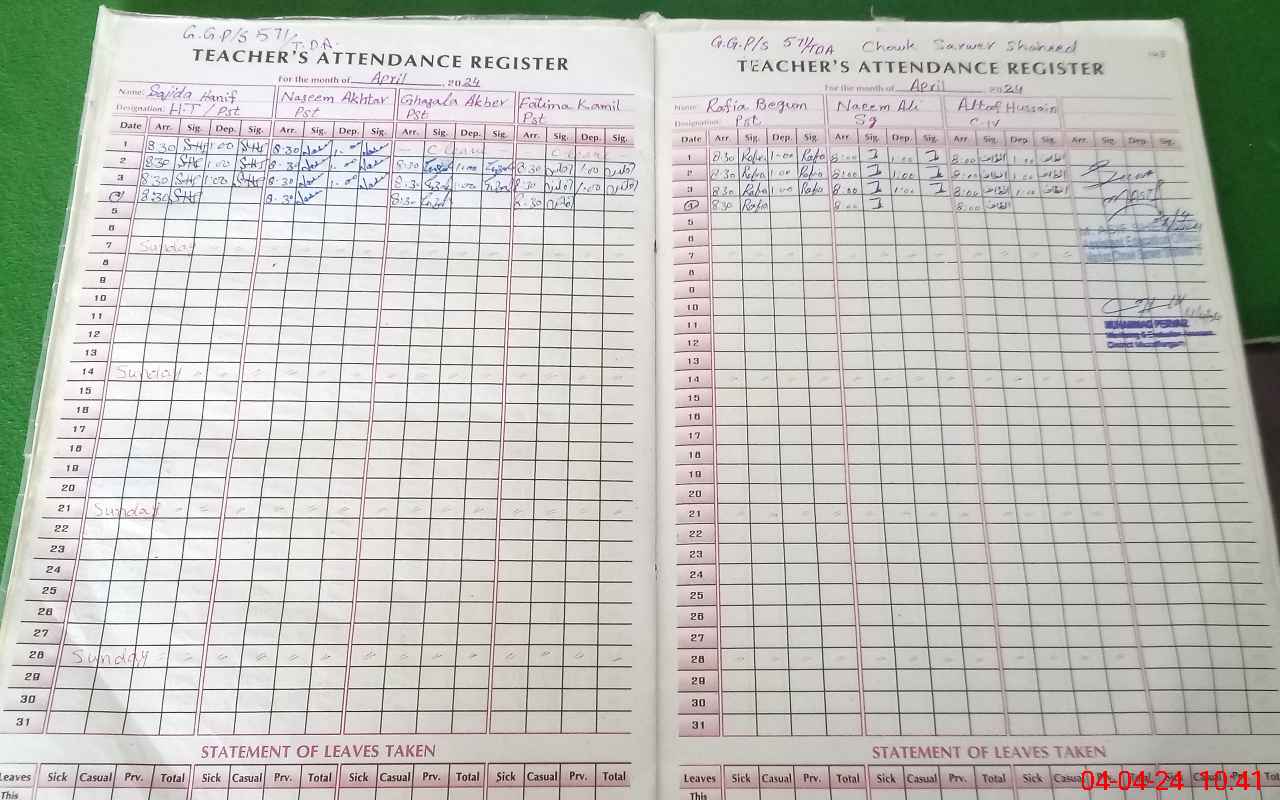 G.G.P/S 571/T.D.A.
TEACHER'S ATTENDANCE REGISTER
For the month of April, 2024
Name: Sajida Hanif Naseem Akhtar Ghazala Akber Fatima Kamil
Designation: H-T / Pst Pst Pst Pst
Date Arr. Sig. Dep. Sig. Arr. Sig. Dep. Sig. Arr. Sig. Dep. Sig. Arr. Sig. Dep. Sig.
1 8:30 1:00 8:30 1:00 C leave C leave
2 8:30 1:00 8:30 1:00 8:30 1:00 8:30 1:00
3 8:30 1:00 8:30 1:00 8:30 1:00 8:30 1:00
4 8:30 8:30 8:30 8:30
5
6
7 Sunday
8
9
10
11
12
13
14 Sunday
15
16
17
18
19
20
21 Sunday
22
23
24
25
26
27
28 Sunday
29
30
31
STATEMENT OF LEAVES TAKEN
Leaves Sick Casual Prv. Total Sick Casual Prv. Total Sick Casual Prv. Total Sick Casual Prv. Total
This
G.G.P/S 571/TDA Chowk Sarwer Shaheed
TEACHER'S ATTENDANCE REGISTER
For the month of April 2024
Name: Rafia Begum Naeem Ali Altaf Hussain
Designation: Pst Sg C-IV
Date Arr. Sig. Dep. Sig. Arr. Sig. Dep. Sig. Arr. Sig. Dep. Sig. Arr. Sig. Dep. Sig.
1 8:30 Rafia 1:00 Rafia 8:00 1:00 8:00 الطاف 1:00 الطاف
2 8:30 Rafia 1:00 Rafia 8:00 1:00 8:00 الطاف 1:00 الطاف
3 8:30 Rafia 1:00 Rafia 8:00 1:00 8:00 الطاف 1:00 الطاف
4 8:30 Rafia 8:00 8:00 الطاف
5
6
7
8
9
10
11
12
13
14
15
16
17
18
19
20
21
22
23
24
25
26
27
28
29
30
31
STATEMENT OF LEAVES TAKEN
Leaves Sick Casual Prv. Total Sick Casual Prv. Total Sick Casual Prv. Total
This
04-04-24 10:41